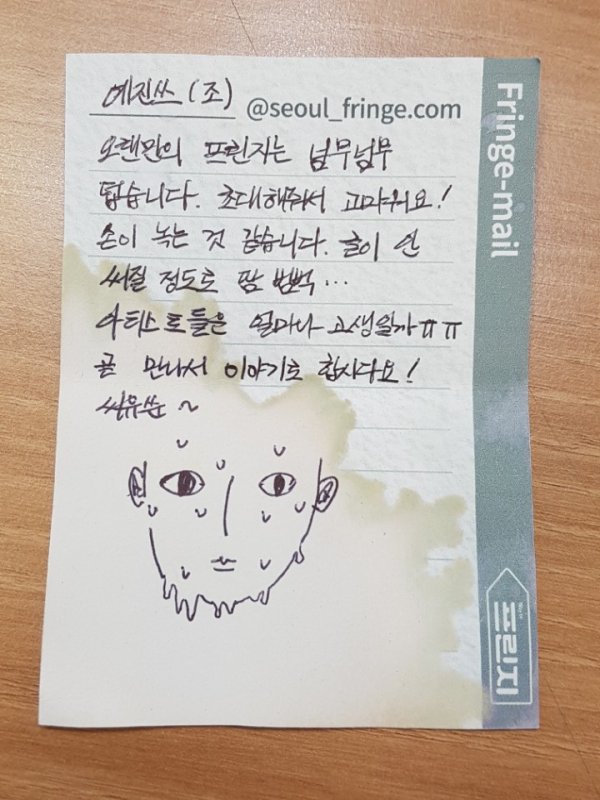 예진쓰 (조) @seoul_fringe.com
오랜만의 프린지는 넘무넘무
덥습니다. 초대해줘서 고마워요!
손이 녹는 것 같습니다. 글이 안
써질 정도로 땀 범벅...
아티스트들은 얼마나 고생일까ㅠㅠ
곧 만나서 이야기로 합시다요!
씨유쑨~
Fringe-mail
프린지